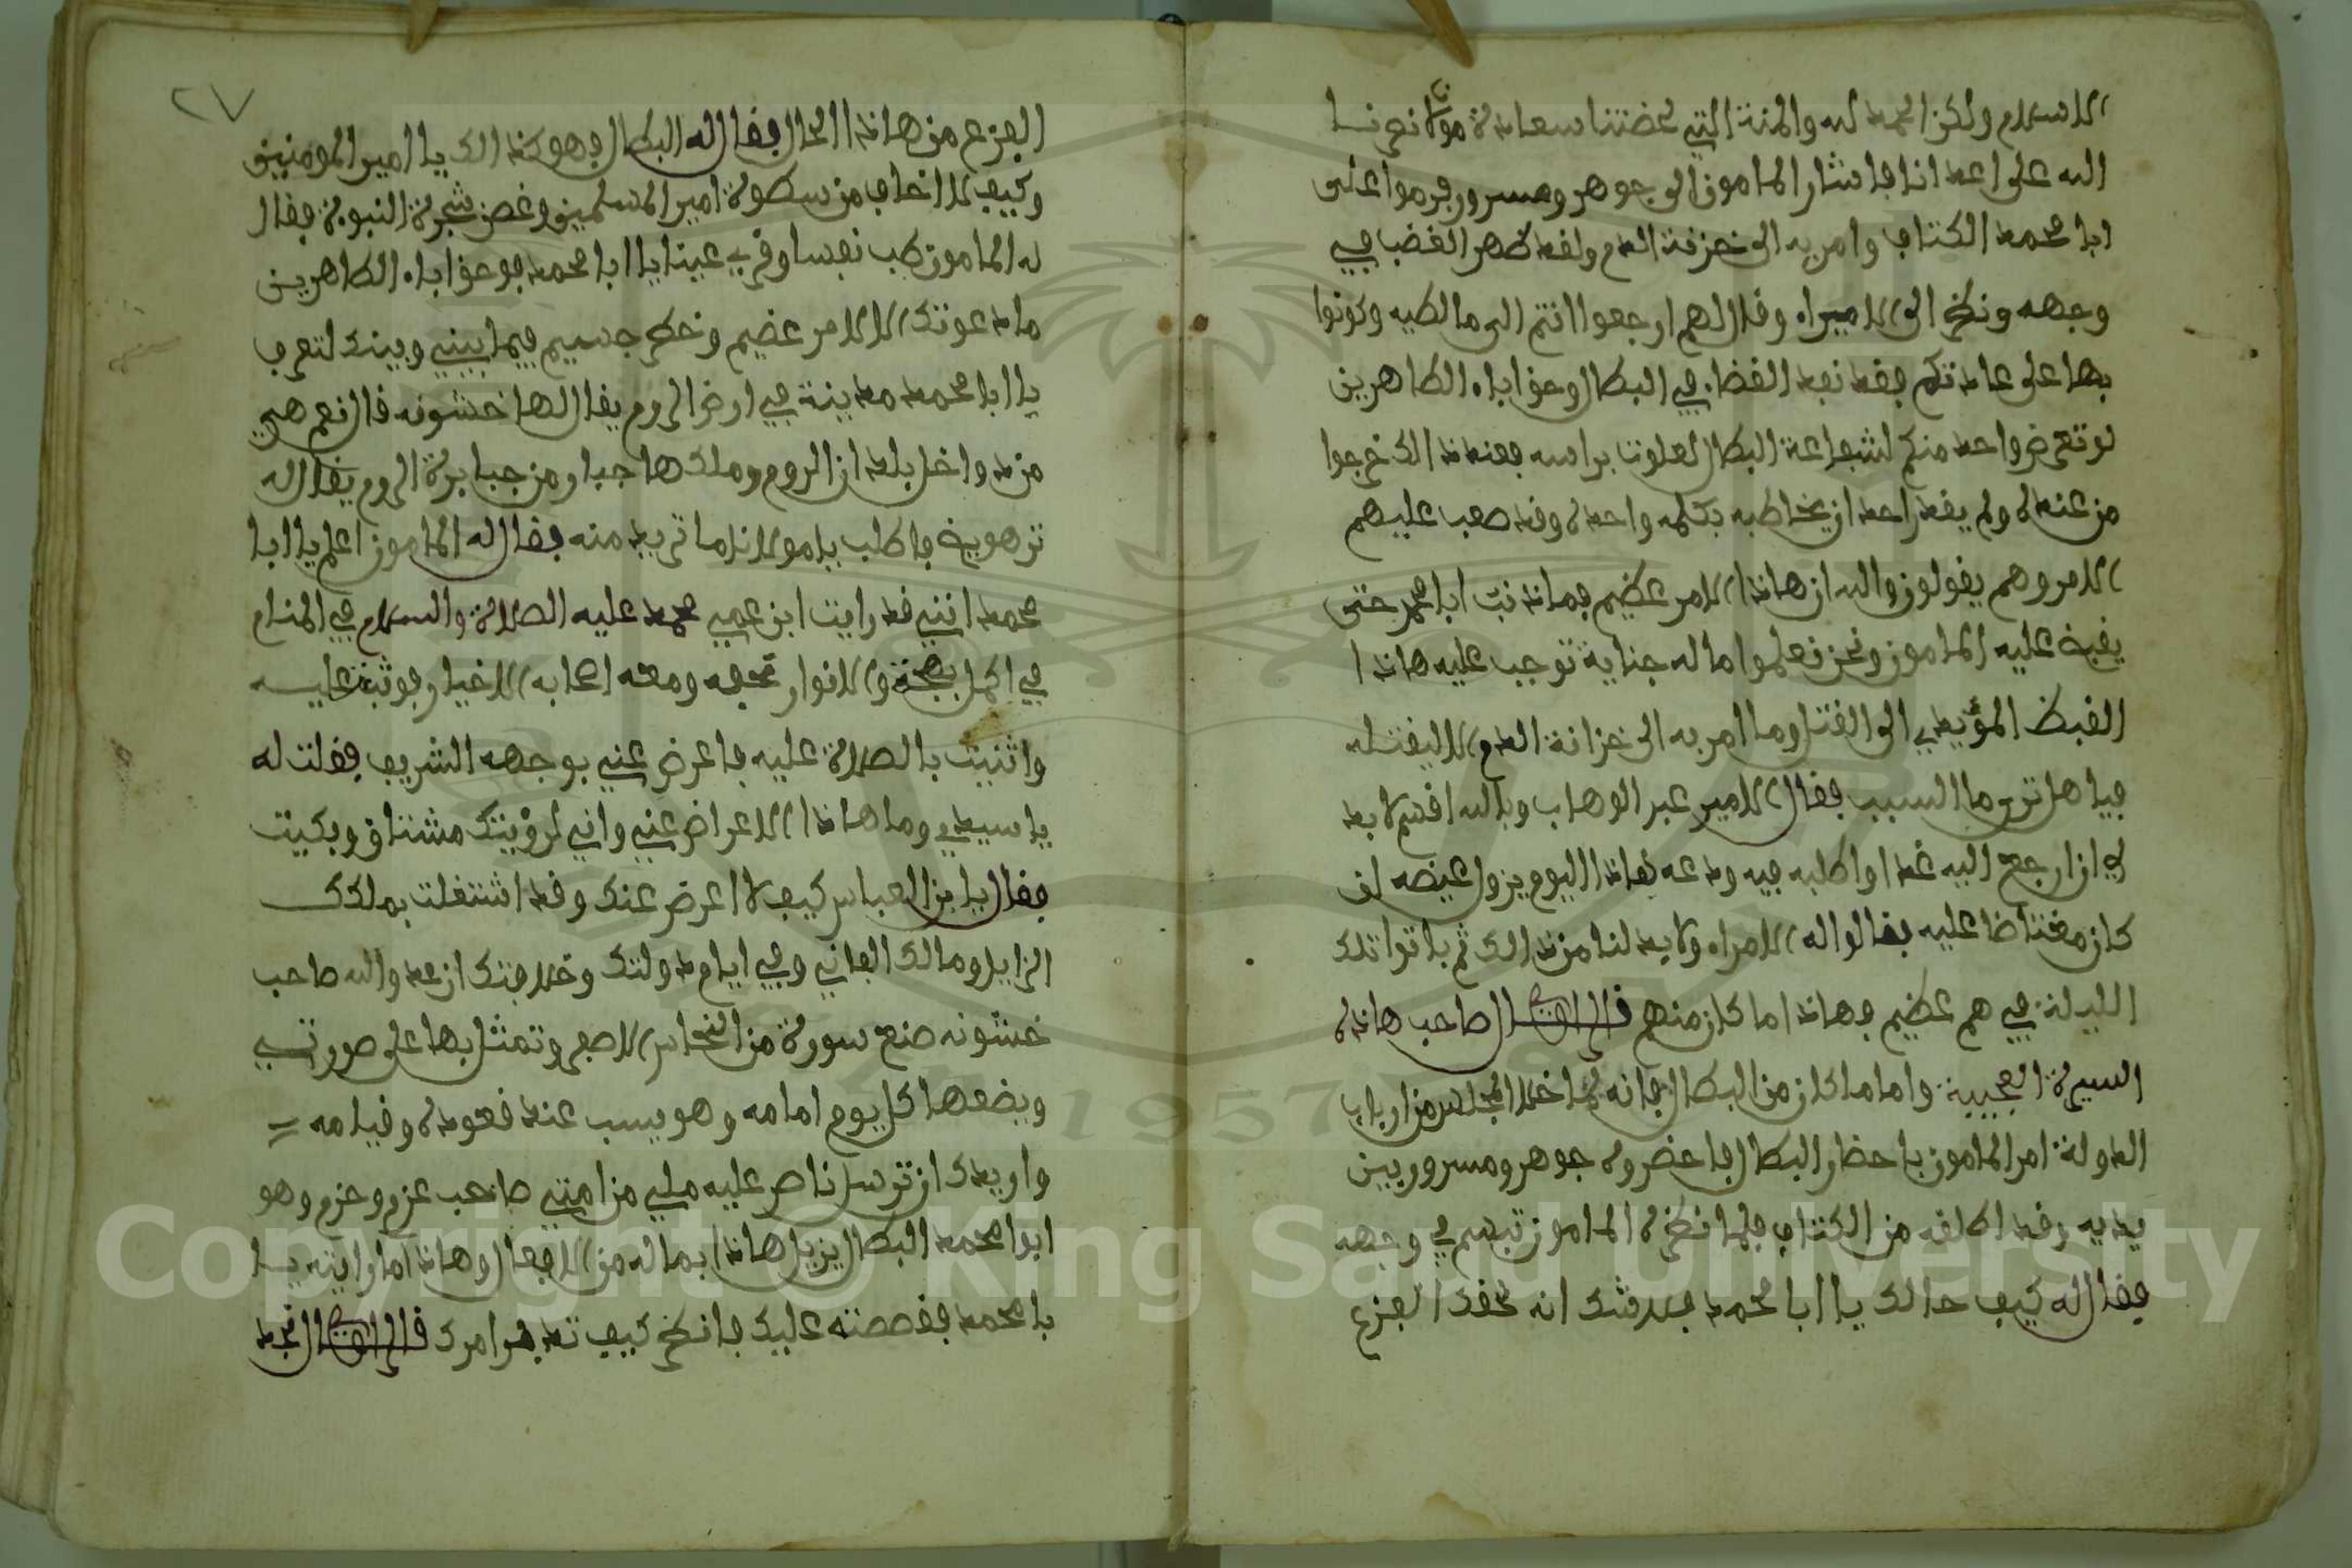 الاسلام ولكن الحمد لله والمنة التي لحضتنا سعادة مولانا نصرنا
الله على اعدانا فاشار المامون الى جوهر ومسرور فرموا على
ابا محمد الكتاف وامر به الى خزنة الدم ولقد ظهر الغضب في
وجهه ونظر الى الاميراء وقال لهم ارجعوا انتم الى مالطيه وكونوا
بها على عادتكم فقد نفد القضاء في البطال وحق اباء الطاهرين
لو تعرض واحد منكم لشفاعة البطال لعلوت براسه فعند ذالك خرجوا
من عنده ولم يقدر احد ان يخاطبه بكلمه واحدة وقد صعب عليهم
الامر وهم يقولون والله ان هاذا الامر عظيم فما ذنب ابا محمد حتى
يقبض عليه المامون ونحن نعلموا ما له جناية توجب عليه هاذا
القبظ المؤيدي الى القتل وما امر به الى خزانة الدم الا ليقتله
فيا هل ترى ما السبب فقال الامير عبد الوهاب وبالله اقسم لا بد
لي ان ارجع اليه غدا واطلبه فيه ودعه هاذا اليوم يزول غيضه لن
كان مغتاظا عليه فقالوا له الامراء ولا بد لنا من ذالك ثم باتوا تلك
الليلة في هم عظيم وهاذا ما كان منهم قال الراوي قال صاحب هاذه
السيرة العجيبة واما ما كان من البطال فانه لما خلا المجلس من ارباب
الدولة امر المامون باحضار البطال فاحضروه جوهر ومسرور بين
يديه وقد اطلقه من الكتاف فلما نظره المامون تبسم في وجهه
فقال له كيف حالك يا ابا محمد فلا شك انه لحقك الفزع
٢٧
الفزع من هاذا الحال فقال له البطال وهو كذالك يا امير المومنين
وكيف لا اخاف من سطوة امير المسلمين وغصن شجرة النبوة فقال
له المامون طب نفسا وقر عينا يا ابا محمد فوحق اباء الطاهرين
ما دعوتك الا لامر عضيم وخطر جسيم فيما بيني وبينك لتعرف
يا ابا محمد مدينة في ارض الروم يقال لها خشونه قال نعم هي
من داخل بلدان الروم وملكها جبار من جبابرة الروم يقال له
ترهويخ فاطلب يا مولانا ما تريد منه فقال له المامون اعلم يا ابا
محمد انني قد رايت ابن عمي محمد عليه الصلاة والسلام في المنام
في اكمل بهجة والانوار تحفه ومعه اصحابه الاخيار فوثبت عليه
واثنيت بالصلاة عليه فاعرض عني بوجهه الشريف فقلت له
يا سيدي وما هاذا الاعراض عني واني لرؤيتك مشتاق وبكيت
فقال يا بن العباس كيف لا اعرض عنك وقد اشتغلت بملكك
الزايل ومالك الفاني وفي ايام دولتك وخلافتك ان عدو الله صاحب
خشونه صنع سورة من النحاس الاصفر وتمثل بها على صورتي
ويضعها كل يوم امامه وهو يسب عند قعوده وقيامه
واريدك ان ترسل ناصر عليه ملي من امتي صاحب عزم وحزم وهو
ابوا محمد البطال يزيل هاذا بما له من الافعال وهاذا ما رايته يا
با محمد فقصصته عليك فانظر كيف تدبر امرك قال الراوي قال نجد